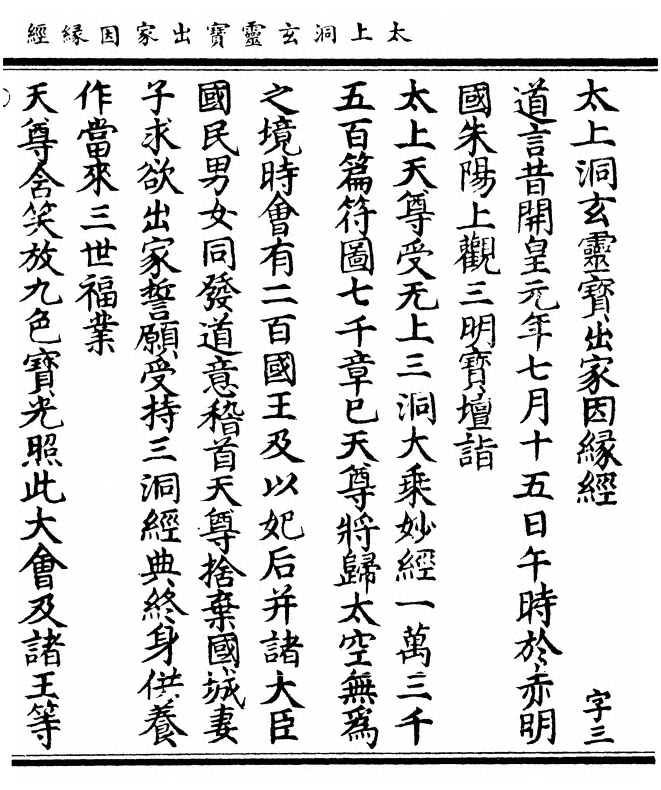 太上洞玄靈寶出家因縁經
太上洞玄靈寶出家因縁經 字三
道言昔開皇元年七月十五日午時於赤明
國朱陽上觀三明寶壇詣
太上天尊受无上三洞大乘妙經一萬三千
五百篇符圖七千章已天尊將歸太空無爲
之境時會有二百國王及以妃后并諸大臣
國民男女同發道意稽首天尊捨棄國城妻
子求欲出家誓願受持三洞經典終身供養
作當來三世福業
天尊含笑放九色寶光照此大會及諸王等